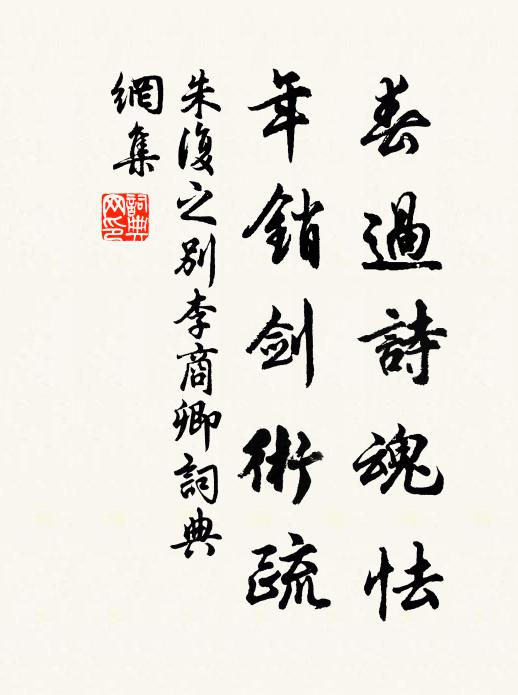 春過詩魂怯
年銷劍術疏
朱復之别李商卿詞典
網集
詞典
网印